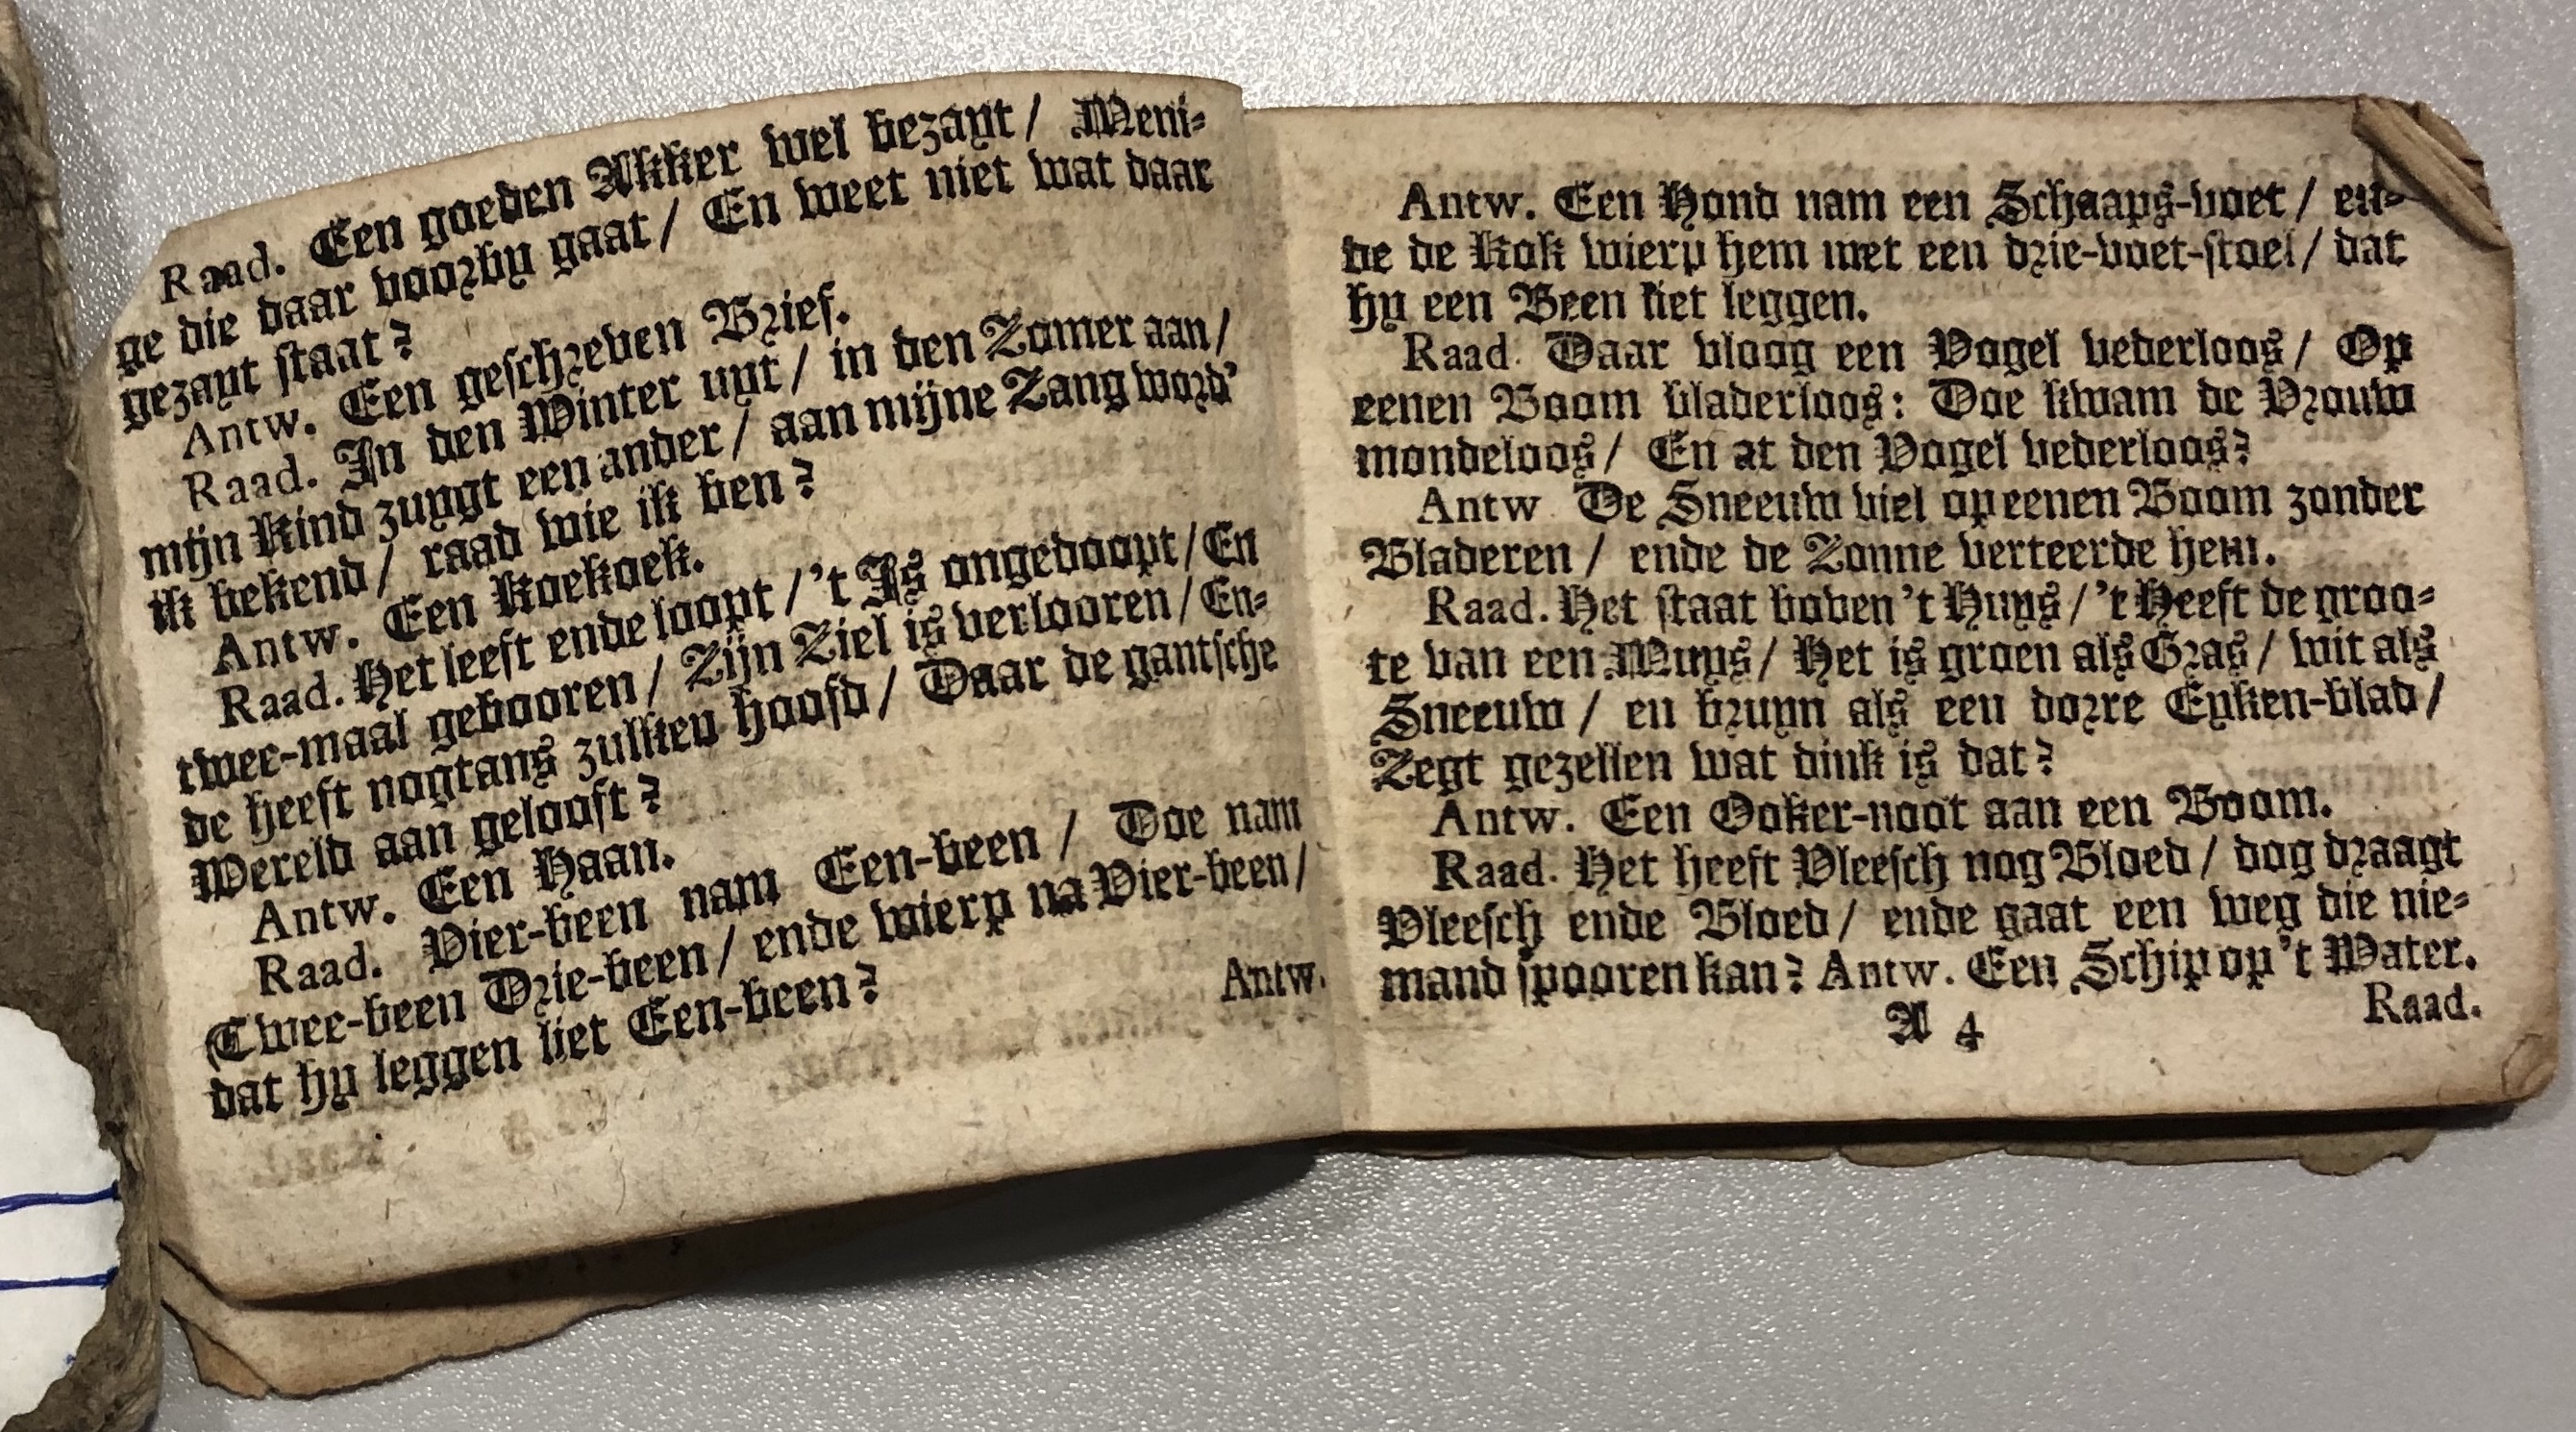 Raad. Een goeden Akker wel bezayt / Meni-
ge die daar voorby gaat / En weet niet wat daar
gezayt staat?
Antw. Een geschreven Brief.
Raad. In den Winter uyt / in den Zomer aan /
mijn Kind zuygt een ander / aan mijne Zang word'
ik bekend / raad wie ik ben?
Antw. Een Koekoek.
Raad. Het leeft ende loopt / 't Is ongedoopt / En
twee-maal gebooren / Zijn Ziel is verlooren / En-
de heeft nogtans zulken hoofd / Daar de gantsche
Wereld aan gelooft?
Antw. Een Haan.
Raad. Vier-been nam Een-been / Doe nam
Twee-been Drie-been / ende wierp na Vier-been /
dat hy leggen liet Een-been?
Antw.
Antw. Een Hond nam een Schaaps-voet / en-
de de Kok wierp hem met een drie-voet-stoel / dat
hy een Been liet leggen.
Raad. Daar vloog een Vogel vederloos / Op
eenen Boom bladerloos: Doe kwam de Vrouw
mondeloos / En at den Vogel vederloos?
Antw. De Sneeuw viel op eenen Boom zonder
Bladeren / ende de Zonne verteerde hem.
Raad. Het staat boven 't Huys / 't Heeft de groo-
te van een Muys / Het is groen als Gras / wit als
Sneeuw / en bruyn als een dorre Eyken-blad /
Zegt gezellen wat dink is dat?
Antw. Een Ooker-noot aan een Boom.
Raad. Het heeft Vleesch nog Bloed / dog draagt
Vleesch ende Bloed / ende gaat een weg die nie-
mand spooren kan? Antw. Een Schip op 't Water.
A 4
Raad.